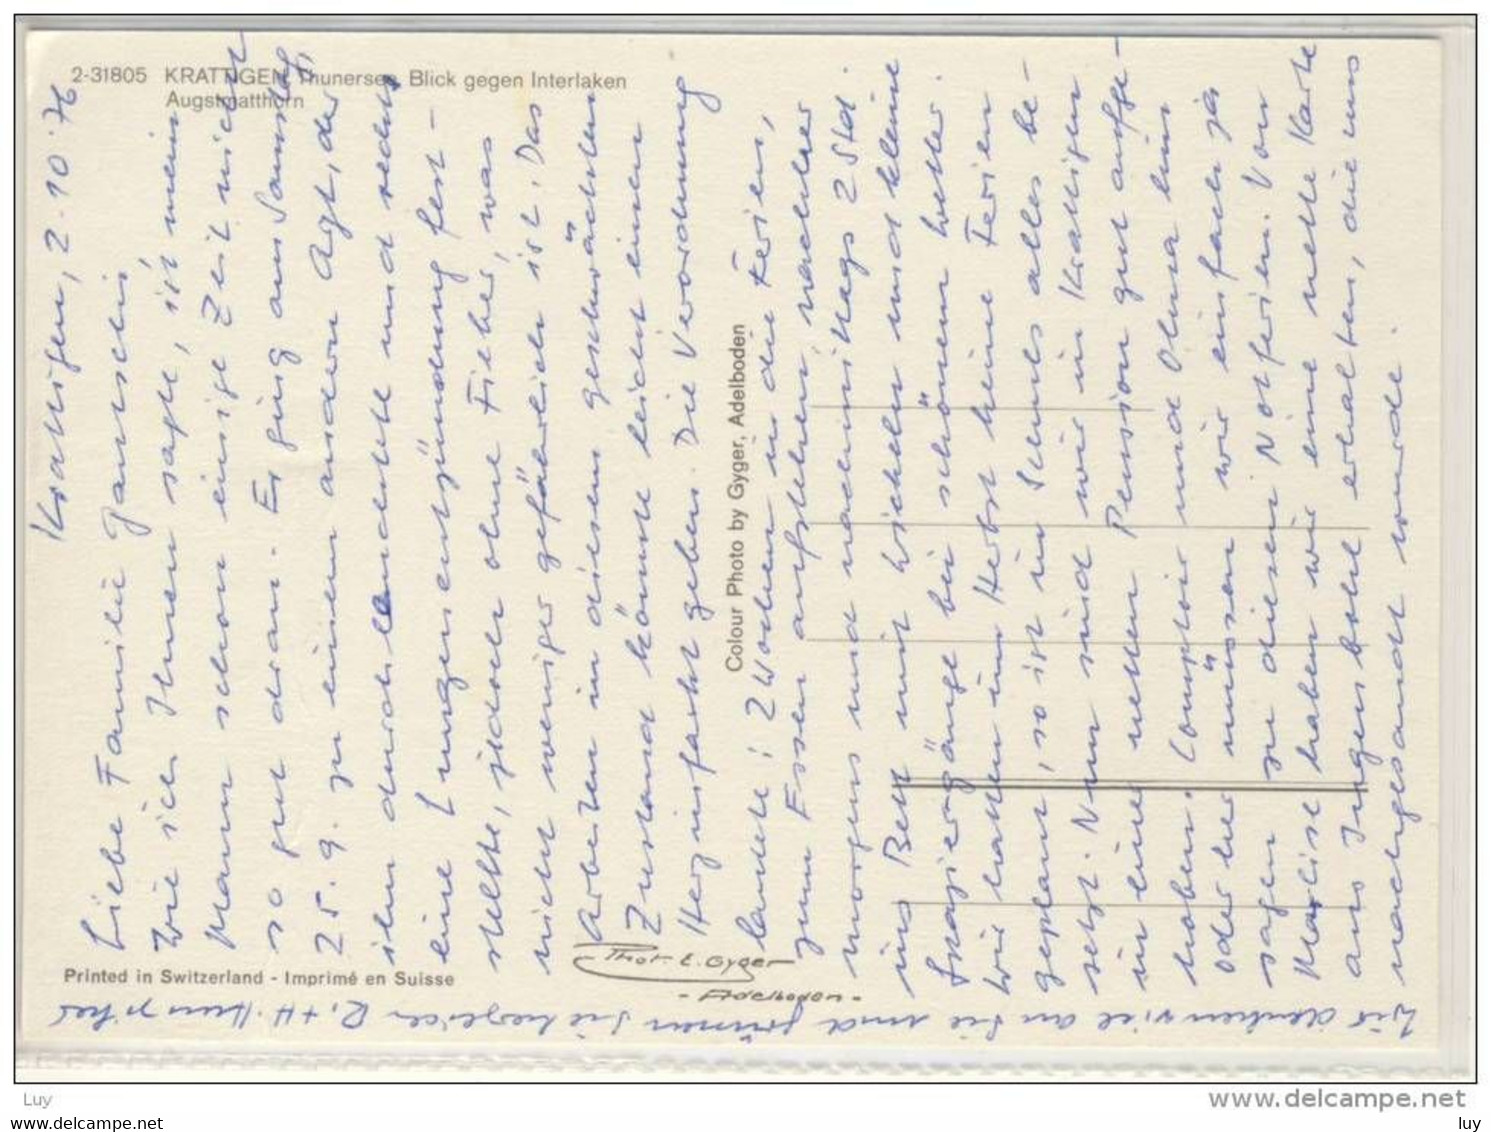 2-31805 KRATTIGEN Thunersee, Blick gegen Interlaken
Augstmatthorn
Krattigen, 2.10.76
Liebe Familie
Wie ich Ihnen sagte, ist mein
Mann schon einige Zeit nicht
so gut dran. Er ging am Samstag,
25. 9. zu einem andern Arzt, der
ihn durchleuchtete und
eine Lungenentzündung fest-
stellte, jedoch ohne Fieber, was
nicht weniger gefährlich ist. Das
Arbeiten in diesem geschwächten
Zustand könnte leicht einen
Herzinfarkt geben. Die Verordnung
lautete: 2 Wochen in die Ferien,
zum Essen aufstehen, nachher
morgens und nachmittags 2 Std.
ins Bett mit Wickeln und kleine
Spaziergänge bei schönem Wetter.
Wir hatten im Herbst keine Ferien
geplant, so ist im Schuls alles be-
setzt. Nun sind wir in Krattigen
in einer netten Pension gut aufge-
hoben. Comptoir und Olma hin
oder her müssen wir einfach ja
sagen zu diesen Notferien. Von
Marlise haben wir eine nette Karte
aus Ingenbohl erhalten, die uns
nachgesandt wurde.
Wir denken viel an Sie und grüssen Sie herzlich R. + H.
Colour Photo by Gyger, Adelboden
Printed in Switzerland - Imprimé en Suisse
Phot. E. Gyger
- Adelboden -
Luy
www.delcampe.net
www.delcampe.net
luy